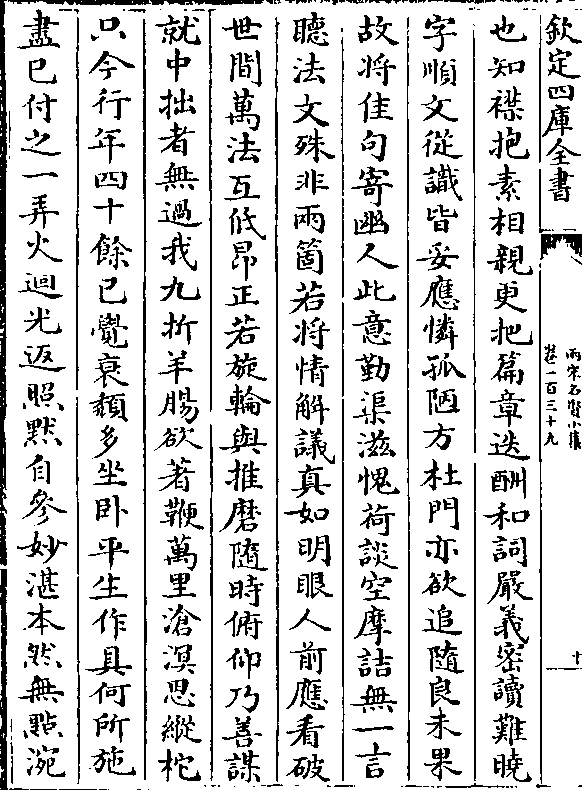 欽定四庫全書
兩宋名賢小集
卷一百三十九
十
也知襟抱素相親更把篇章迭酬和詞嚴義密讀難曉
字順文從識皆妥應憐孤陋方杜門亦欲追隨良未果
故將佳句寄幽人此意勤渠滋愧荷談空摩詰無一言
聽法文殊非兩箇若將情解議真如明眼人前應看破
世間萬法互低昂正若旋輪與推磨隨時俯仰乃善謀
就中拙者無過我九折羊腸欲著鞭萬里滄溟思縱柁
只今行年四十餘已覺衰頽多坐卧平生作具何所施
盡已付之一弄火迴光返照黙自參妙湛本然無點涴